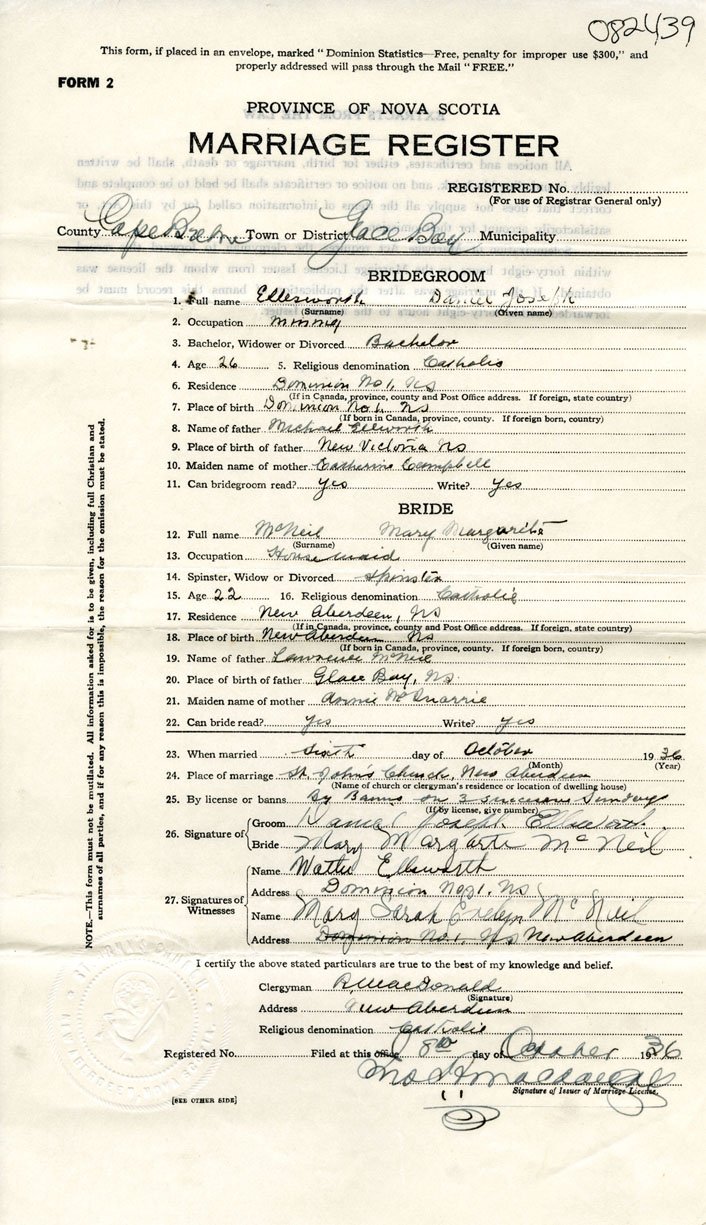 082439
This form, if placed in an envelope, marked "Dominion Statistics—Free, penalty for improper use $300," and
properly addressed will pass through the Mail "FREE."
FORM 2
PROVINCE OF NOVA SCOTIA
MARRIAGE REGISTER
REGISTERED No.
(For use of Registrar General only)
County Cape Breton Town or District Glace Bay Municipality
BRIDEGROOM
1. Full name Ellesworth Daniel Joseph
(Surname) (Given name)
2. Occupation mining
3. Bachelor, Widower or Divorced Bachelor
4. Age 26 5. Religious denomination Catholic
6. Residence Dominion No 1, NS
(If in Canada, province, county and Post Office address. If foreign, state country)
7. Place of birth Dominion No 1, NS
(If born in Canada, province, county. If foreign born, country)
8. Name of father Michael Ellsworth
9. Place of birth of father New Victoria NS
10. Maiden name of mother Catherine Campbell
11. Can bridegroom read? yes Write? yes
BRIDE
12. Full name McNeil Mary Margarite
(Surname) (Given name)
13. Occupation House maid
14. Spinster, Widow or Divorced Spinster
15. Age 22 16. Religious denomination Catholic
17. Residence New Aberdeen, NS
(If in Canada, province, county and Post Office address. If foreign, state country)
18. Place of birth New Aberdeen NS
(If born in Canada, province, county. If foreign born, country)
19. Name of father Lawrence McNeil
20. Place of birth of father Glace Bay, NS.
21. Maiden name of mother Annie McQuarrie
22. Can bride read? yes Write? yes
23. When married sixth day of October 1936
(Month) (Year)
24. Place of marriage St. John's Church, New Aberdeen
(Name of church or clergyman's residence or location of dwelling house)
25. By license or banns By Banns on 3 Sundays
(If by license, give number)
26. Signature of Groom Daniel Joseph Ellsworth
Bride Mary Margarte McNeil
27. Signatures of Witnesses
Name Ellsworth
Address Dominion No 1, NS
Name Mary Sarah Evelyn McNeil
Address Dominion No. 1, NS New Aberdeen
I certify the above stated particulars are true to the best of my knowledge and belief.
Clergyman MacDonald
(Signature)
Address New Aberdeen
Religious denomination Catholic
Registered No. Filed at this office 8th day of October 1936
Signature of Issuer of Marriage License.
[SEE OTHER SIDE]
NOTE.—This form must not be mutilated. All information asked for is to be given, including full Christian and
surnames of all parties, and if for any reason this is impossible, the reason for the omission must be stated.